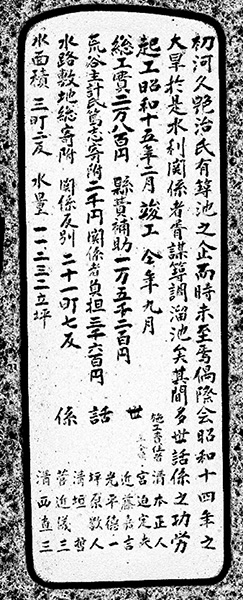 初河久艶治氏有鑿池之企而時未至焉偶際会昭和十四年之
大旱於是水利関係者胥謀築調溜池矣其間多世話係之功労
起工昭和十五年二月 竣工 仝年九月
総工費二万八百円 縣費補助一万五千二百円
荒谷圭計氏篤志寄附二千円関係者負担三千六百円
水路敷地総寄附 関係反別 二十一町七反
水面積 三町二反 水量 一一.二三二立坪
世話係
施工責任者
清本正人
宮迫定夫
近藤嘉吉
光平徳一
坪原数人
清垣哲
菅近儀三
清西直三